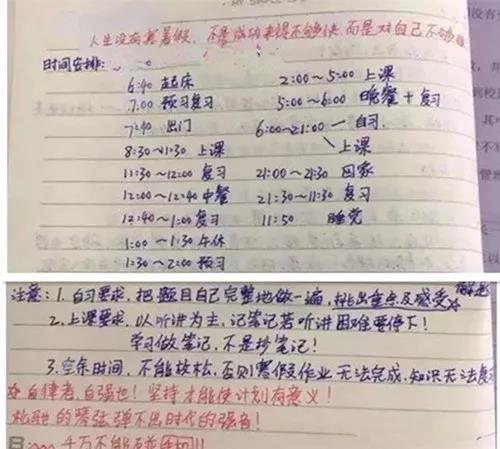 人生没有寒暑假，不是成功来得不够快，而是对自己不够狠
时间安排：
6:40 起床
7:00 预习复习
7:40 出门
8:30~11:30 上课
11:30~12:00 复习
12:00~12:40 中餐
12:40~1:00 复习
1:00~1:30 午休
1:30~2:00 预习
2:00~5:00 上课
5:00~6:00 晚餐+复习
6:00~21:00 自习
上课
21:00~21:30 回家
21:30~11:30 复习
11:50 睡觉
注意：1. 自习要求，把题目自己完整地做一遍，挑出重点及感受
2. 上课要求，以听讲为主，记笔记若听讲困难要停下！
学习做笔记，不是抄笔记！
3. 空余时间，不能放松，否则寒假作业无法完成，知识无法复
自律者，自强也！坚持才能使计划有意义！
松弛的琴弦弹不出时代的强音！
千万不能玩手机!!